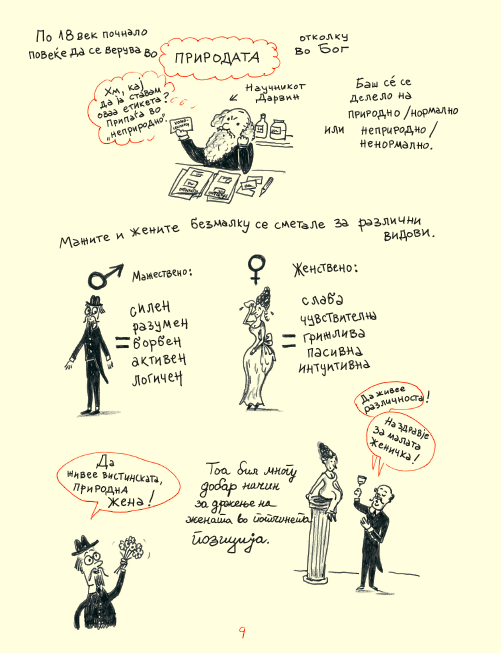 По 18 век почнало
повеќе да се верува во
ПРИРОДАТА
отколку
во Бог
Хм, кај
да ја ставам
оваа етикета?
Припаѓа во
„неприродно“.
Научникот
Дарвин
Баш сé се
делело на
природно/нормално
или неприродно/
ненормално.
Мажите и жените безмалку се сметале за различни
видови.
Мажествено:
силен
разумен
= борбен
активен
логичен
Женствено:
слаба
чувствителна
= грижлива
пасивна
интуитивна
Да живее
различноста!
На здравје
за малата
женичка!
Да
живее вистинската,
природна
жена!
Тоа бил многу
добар начин
за држење на
жената во потчинета
позиција.
9